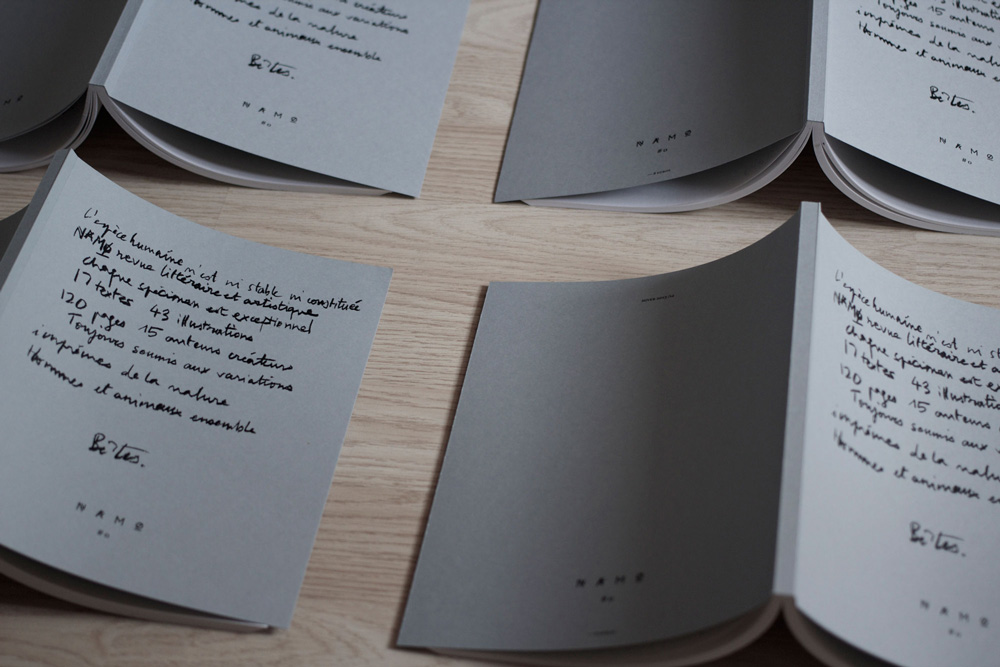 créateurs
aux variations
de la nature
et animaux ensemble
Bêtes.
NAMØ
#0
NAMØ
#0
15 auteurs
de la nature
Toujours soumis aux
Hommes et animaux ensemble
Bêtes.
NAMØ
#0
L'espèce humaine n'est ni stable ni constituée
NAMØ revue littéraire et artistique
chaque spécimen est exceptionnel
17 textes 43 illustrations
120 pages 15 auteurs créateurs
Toujours soumis aux variations
de la nature
Hommes et animaux ensemble
Bêtes.
NAMØ
#0
NAMØ
#0
L'espèce humaine n'est ni
NAMØ revue littéraire et
chaque spécimen est
17 textes 43
120 pages 15 auteurs
Toujours soumis aux
de la
Hommes et animaux
Bêtes.
NAMØ
#0